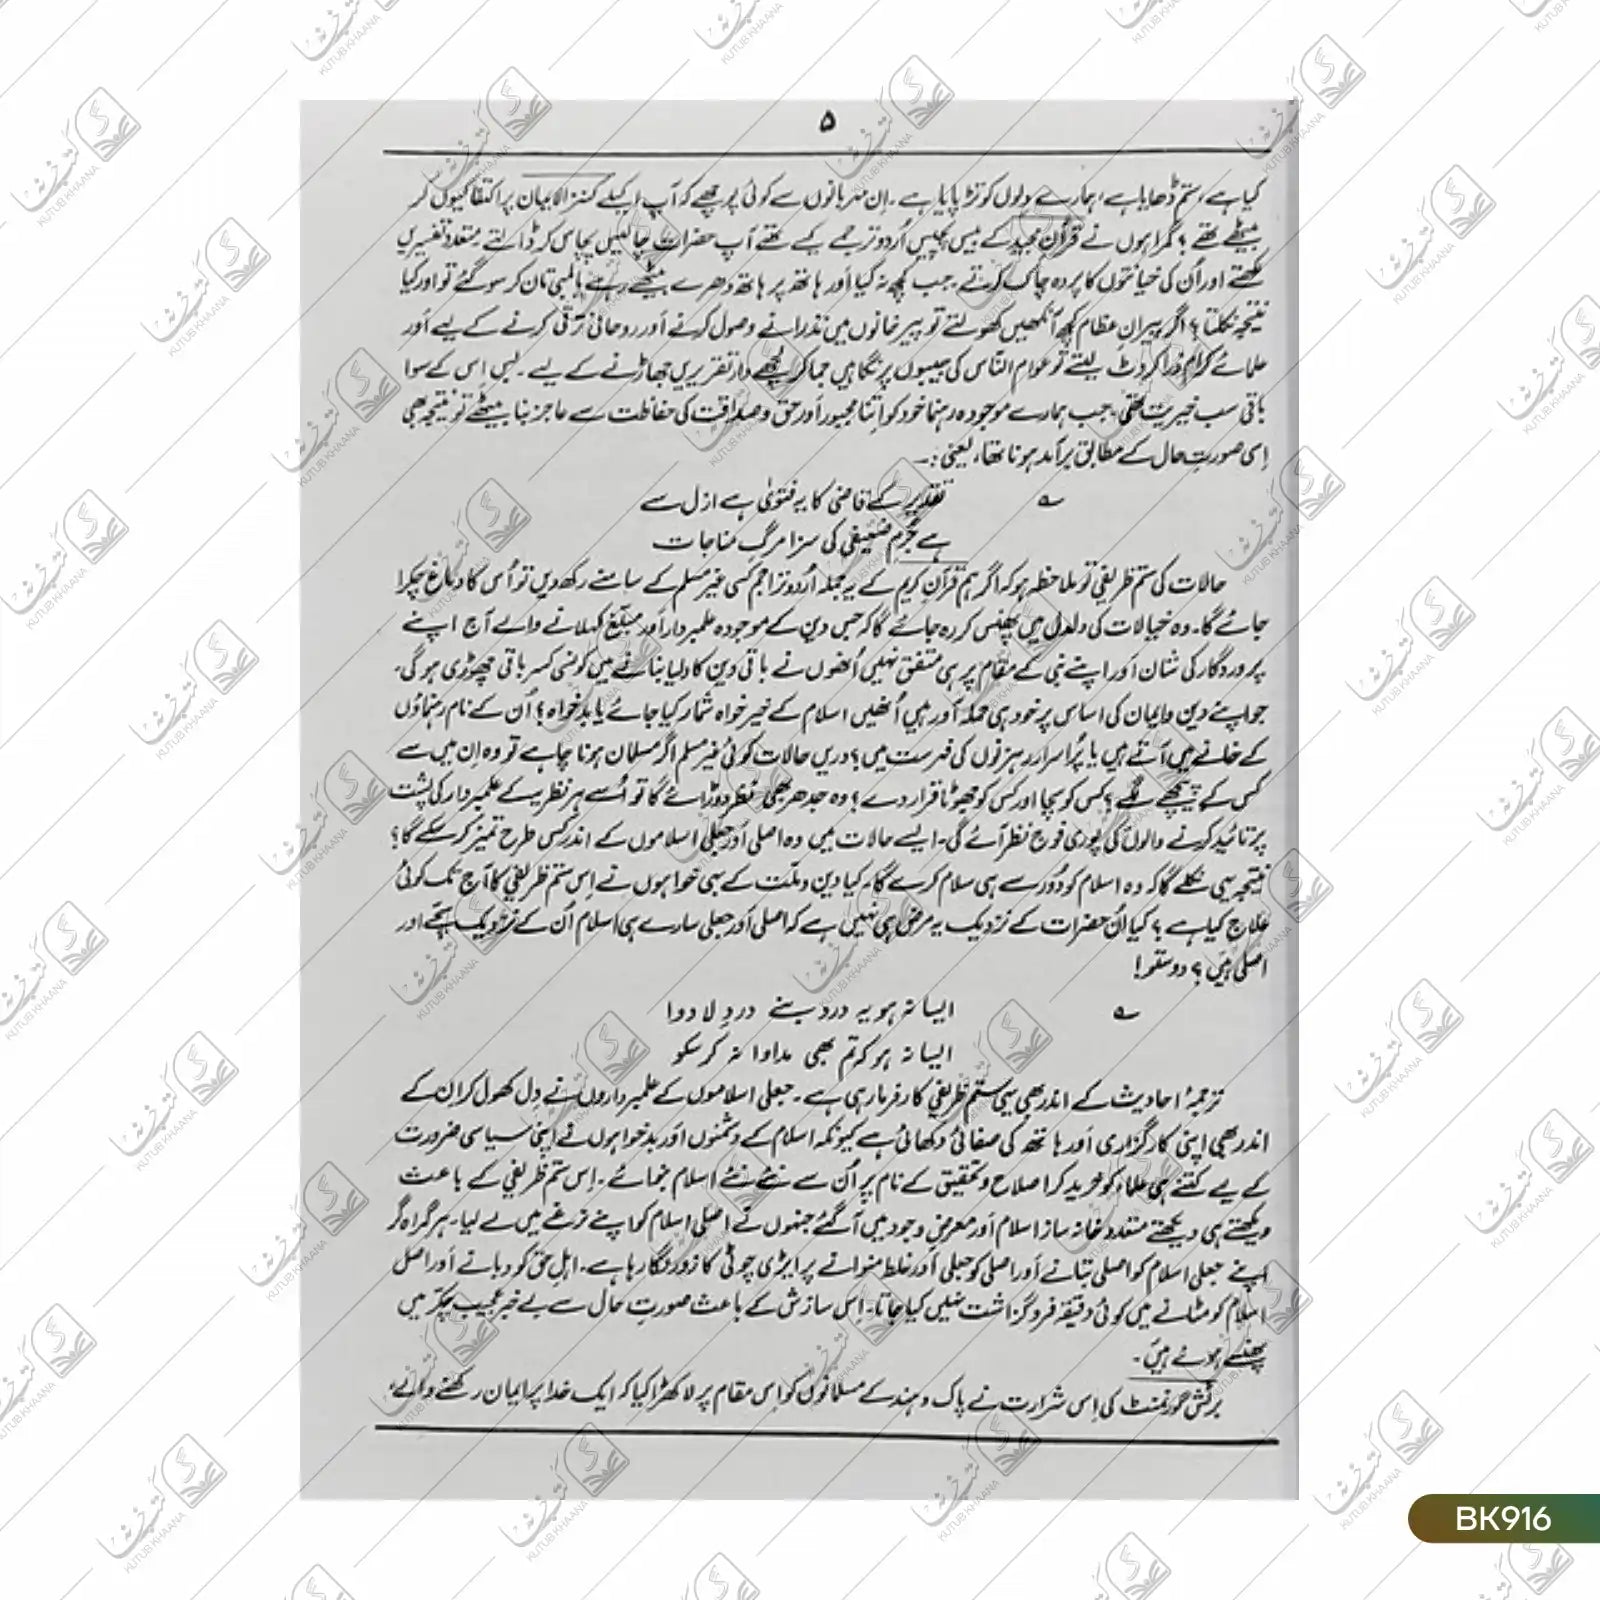 ۵
کیا ہے، ستم ڈھایا ہے، ہمارے دلوں کو تڑپایا ہے۔ اِن مہربانوں سے کوئی پوچھے کہ آپ اکیلے کنز الایمان پر اکتفا کیوں کر
بیٹھے تھے؟ گمراہوں نے قرآن مجید کے بیس پچیس اُردو ترجمے کیے تھے آپ حضرات چالیس پچاس کر ڈالتے، متعدد تفسیریں
لکھتے اور اُن کی خیانتوں کا پردہ چاک کرتے۔ جب کچھ نہ کیا اَور ہاتھ پر ہاتھ دھرے بیٹھے رہے یا لمبی تان کر سو گئے تو اور کیا
نتیجہ نکلتا؟ اگر پیرانِ عظام کچھ آنکھیں کھولتے تو پیر خانوں میں نذرانے وصول کرنے اَور روحانی ترقی کرنے کے لیے اَور
علمائے کرام ذرا کروٹ لیتے تو عوام النّاس کی جیبوں پر نگاہیں جما کر لچھے دار تقریریں جھاڑنے کے لیے۔ بس اِس کے سوا
باقی سب خیریت تھی۔ جب ہمارے موجودہ رہنما خود کو اِتنا مجبور اَور حق و صداقت کی حفاظت سے عاجز بنا بیٹھے تو نتیجہ بھی
اِسی صورتِ حال کے مطابق برآمد ہونا تھا، یعنی:۔
؎ تقدیر کے قاضی کا یہ فتویٰ ہے ازل سے
ہے جُرمِ ضعیفی کی سزا مرگِ مفاجات
حالات کی ستم ظریفی تو ملاحظہ ہو کہ اگر ہم قرآنِ کریم کے یہ جملہ اُردو تراجم کسی غیر مسلم کے سامنے رکھ دیں تو اُس کا دماغ چکرا
جائے گا۔ وہ خیالات کی دلدل میں پھنس کر رہ جائے گا کہ جس دین کے موجودہ علمبردار اَور مبلّغ کہلانے والے آج اپنے
پروردگار کی شان اَور اپنے نبی کے مقام پر ہی متفق نہیں اُنھوں نے باقی دین کا دلیا بنانے میں کونسی کسر باقی چھوڑی ہو گی۔
جو اپنے دین و ایمان کی اساس پر خود ہی حملہ آور ہیں اُنھیں اسلام کے خیر خواہ شمار کیا جائے یا بدخواہ؟ اُن کے نام رہنماؤں
کے خانے میں آتے ہیں یا پُراسرار رہزنوں کی فہرست میں؟ دریں حالات کوئی غیر مسلم اگر مسلمان ہونا چاہے تو وہ اِن میں سے
کس کے پیچھے لگے؟ کس کو سچا اور کس کو جھوٹا قرار دے؟ وہ جدھر بھی نظر دوڑائے گا تو اُسے ہر نظریے کے علمبردار کی پشت
پر تائید کرنے والوں کی پوری فوج نظر آئے گی۔ ایسے حالات میں وہ اصلی اَور جعلی اسلاموں کے اندر کس طرح تمیز کر سکے گا؟
نتیجہ یہی نکلے گا کہ وہ اسلام کو دُور سے ہی سلام کرے گا۔ کیا دین و ملّت کے بہی خواہوں نے اِس ستم ظریفی کا آج تک کوئی
علاج کیا ہے؟ کیا اُن حضرات کے نزدیک یہ مرض ہی نہیں ہے کہ اصلی اَور جعلی سارے ہی اسلام اُن کے نزدیک سچے اور
اصلی ہیں؟ دوستو!
؎ ایسا نہ ہو یہ درد بنے دردِ لادوا
ایسا نہ ہو کہ تم بھی مداوا نہ کر سکو
ترجمۂ احادیث کے اندر بھی یہی ستم ظریفی کارفرما رہی ہے۔ جعلی اسلاموں کے علمبرداروں نے دِل کھول کر اِن کے
اندر بھی اپنی کارگزاری اَور ہاتھ کی صفائی دکھائی ہے کیونکہ اسلام کے دشمنوں اَور بدخواہوں نے اپنی سیاسی ضرورت
کے لیے کتنے ہی علماء کو خرید کر اصلاح و تحقیق کے نام پر اُن سے نئے نئے اسلام بنوائے۔ اِس ستم ظریفی کے باعث
دیکھتے ہی دیکھتے متعدد خانہ ساز اسلام اَور معرضِ وجود میں آ گئے جنہوں نے اصلی اسلام کو اپنے نرغے میں لے لیا۔ ہر گمراہ گر
اپنے جعلی اسلام کو اصلی بتانے اَور اصلی کو جعلی اَور غلط منوانے پر ایڑی چوٹی کا زور لگا رہا ہے۔ اہلِ حق کو دبانے اَور اصلی
اسلام کو مٹانے میں کوئی دقیقہ فروگزاشت نہیں کیا جاتا۔ اِس سازش کے باعث صورتِ حال سے بے خبر عجیب چکر میں
پھنسے ہوئے ہیں۔
برٹش گورنمنٹ کی اِس شرارت نے پاک و ہند کے مسلمانوں کو اِس مقام پر لا کھڑا کیا کہ ایک خدا پر ایمان رکھنے والے،
BK916
کتب خانہ
KUTUB KHAANA